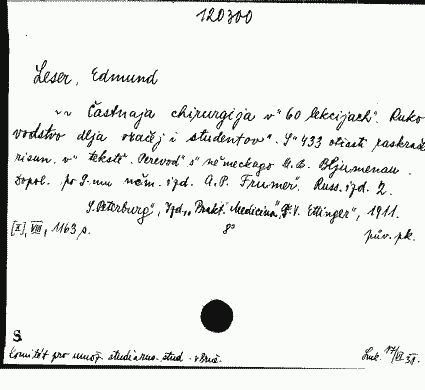 120300
Leser, Edmund
Častnaja chirurgija v" 60 lekcijach". Ruko
vodstvo dlja vračej i studentov". S" 433 otčasti raskraš
risun. v" tekstě. Perevod" s" německago M. B. Bljumenau.
Dopol. po 9-mu něm. izd. A.P. Frumer". Russ. izd. 2.
S. Peterburg", Izd. "Prakt. Medicina", V. Ettinger", 1911.
[X], VIII, 1163 s. 8° pův. pk.
S
Komitét pro umož. studia rus. stud. v Brně.
Luk. 17/VI 31.